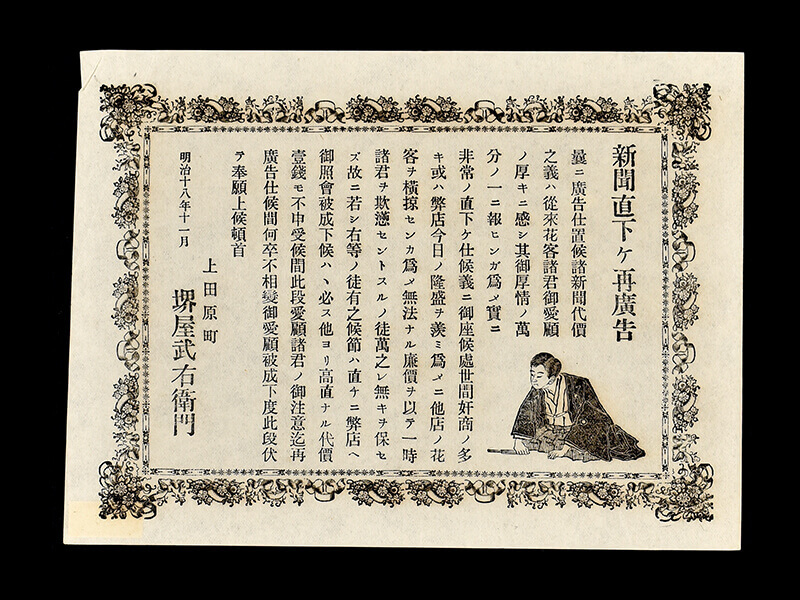 新聞直下ケ再廣告
曩ニ廣告仕置候諸新聞代價
之義ハ從來花客諸君御愛顧
ノ厚キニ感シ其御厚情ノ萬
分ノ一ニ報ヒンガ爲メ實ニ
非常ノ直下ケ仕候義ニ御座候處世間奸商ノ多
キ或ハ弊店今日ノ隆盛ヲ羨ミ爲メニ他店ノ花
客ヲ橫掠センカ爲メ無法ナル廉價ヲ以テ一時
諸君ヲ欺懣セントスルノ徒萬之レ無キヲ保セ
ズ故ニ若シ右等ノ徒有之候節ハ直ケニ弊店ヘ
御照會被成下候ハヽ必ス他ヨリ高直ナル代價
壹錢モ不申受候間此段愛顧諸君ノ御注意迄再
廣告仕候間何卒不相變御愛顧被成下度此段伏
テ奉願上候頓首
明治十八年十一月
上田原町
堺屋武右衛門